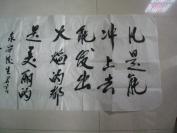 凡是能
冲上去
能发出
火焰的都
是美丽的